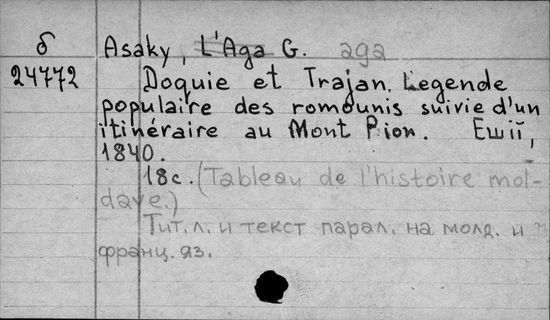 б Asaky, L'Aga G. aga
24772 Doquie et Trajan. Legende
populaire des romounis suivie d'un
itinéraire au Mont Pion. Ешії,
1840.
18c. (Tableau de l'histoire mol-
dave.)
Тит. л. и текст парал. на молд. и
франц. яз.